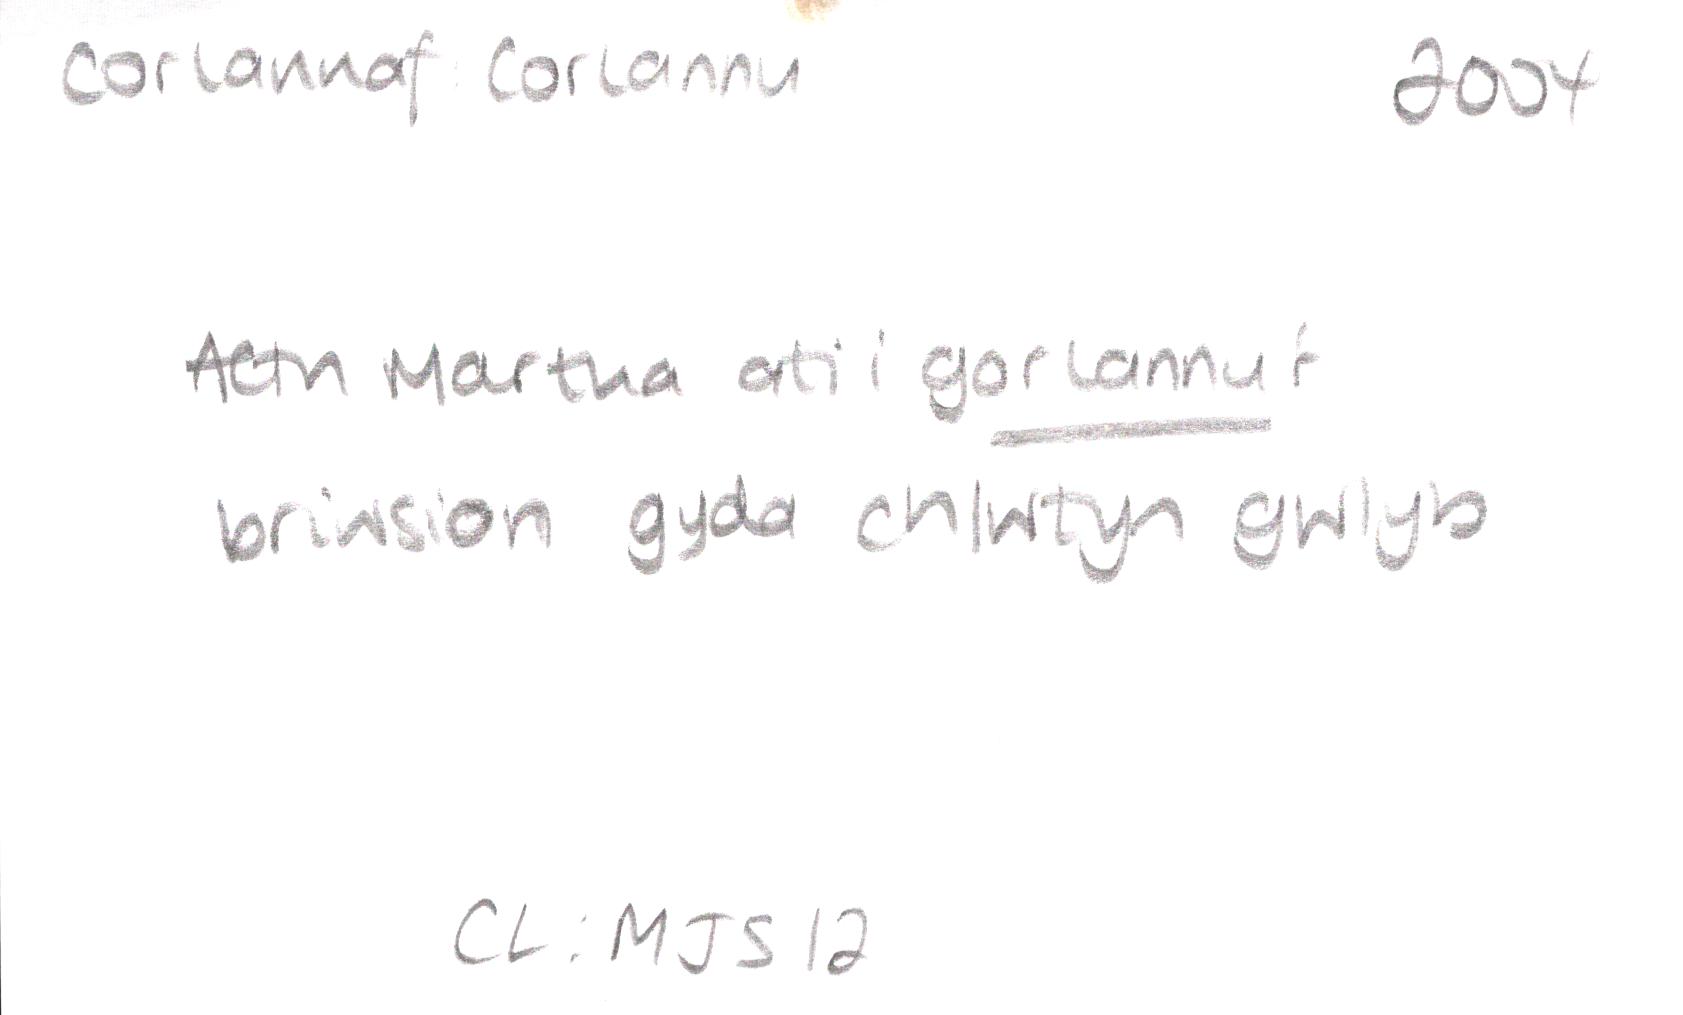 Corlannaf: Corlannu 2004
Aeth Martha ati i gorlannu'r
briwsion gyda chlwtyn gwlyb
CL: MJS 12